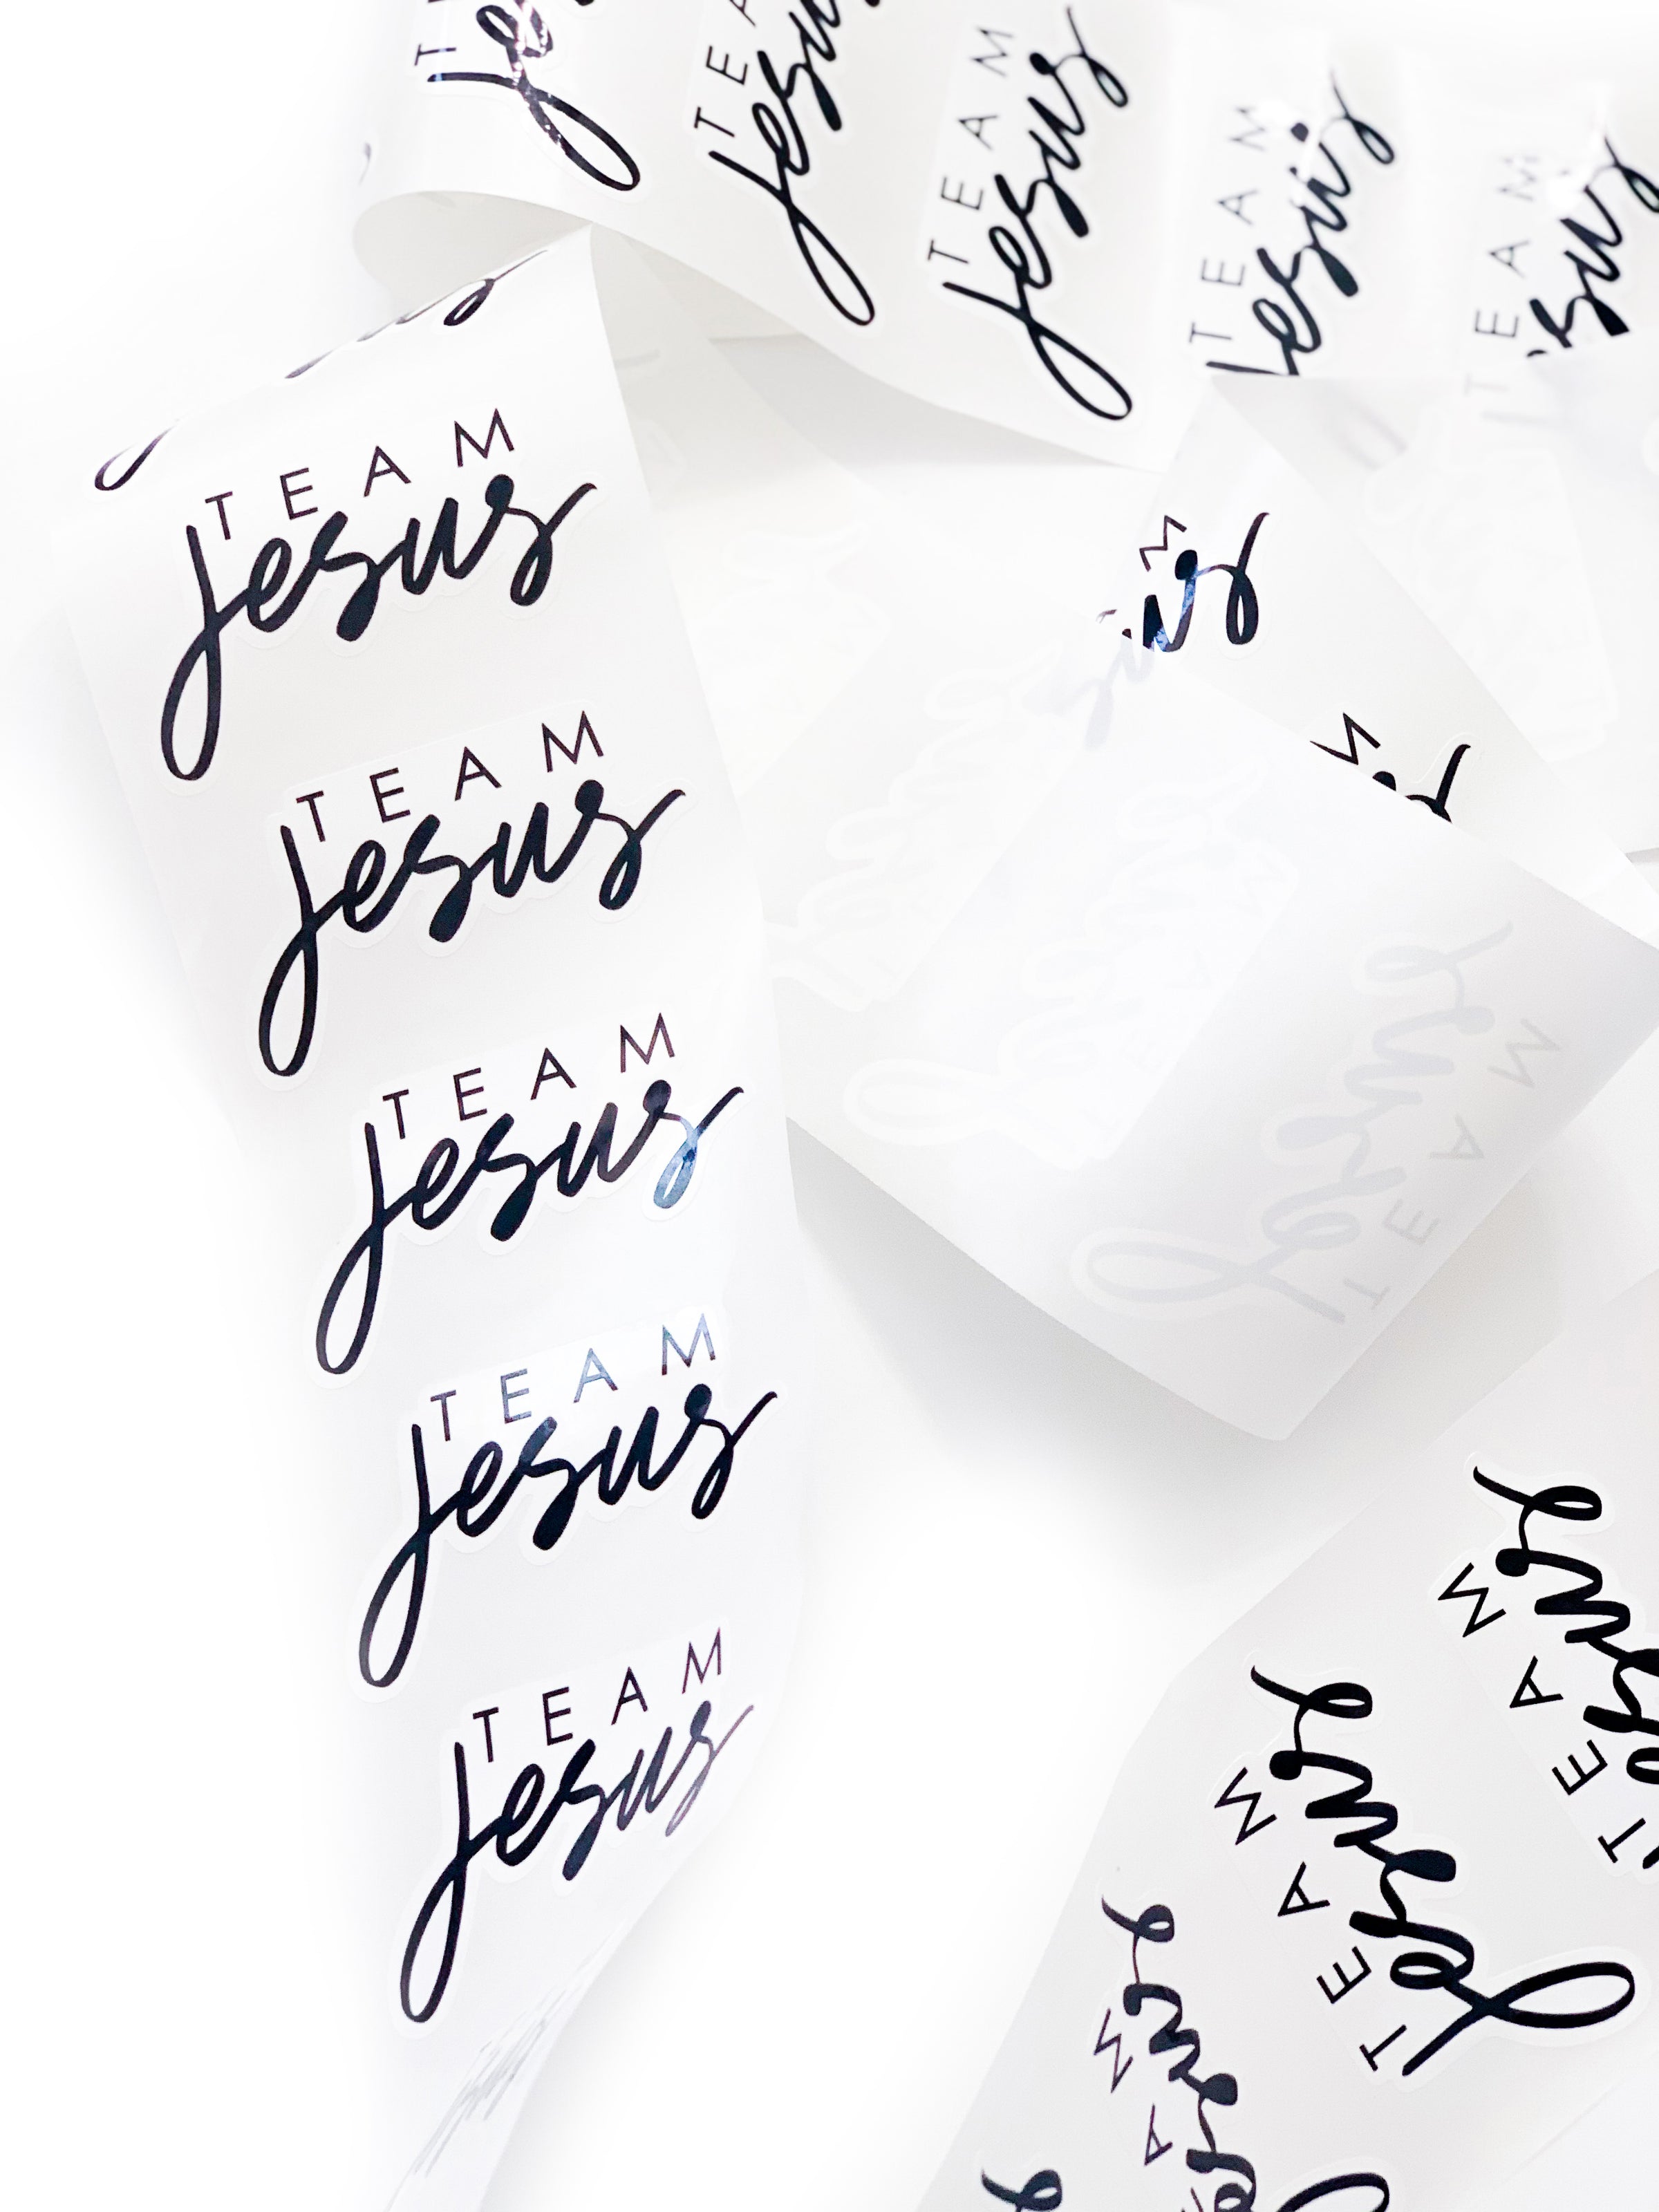 TEAM
Jesus
TEAM
Jesus
TEAM
Jesus
TEAM
Jesus
TEAM
Jesus
TEAM
Jesus
TEAM
Jesus
TEAM
Jesus
TEAM
Jesus
TEAM
Jesus
TEAM
Jesus
TEAM
Jesus